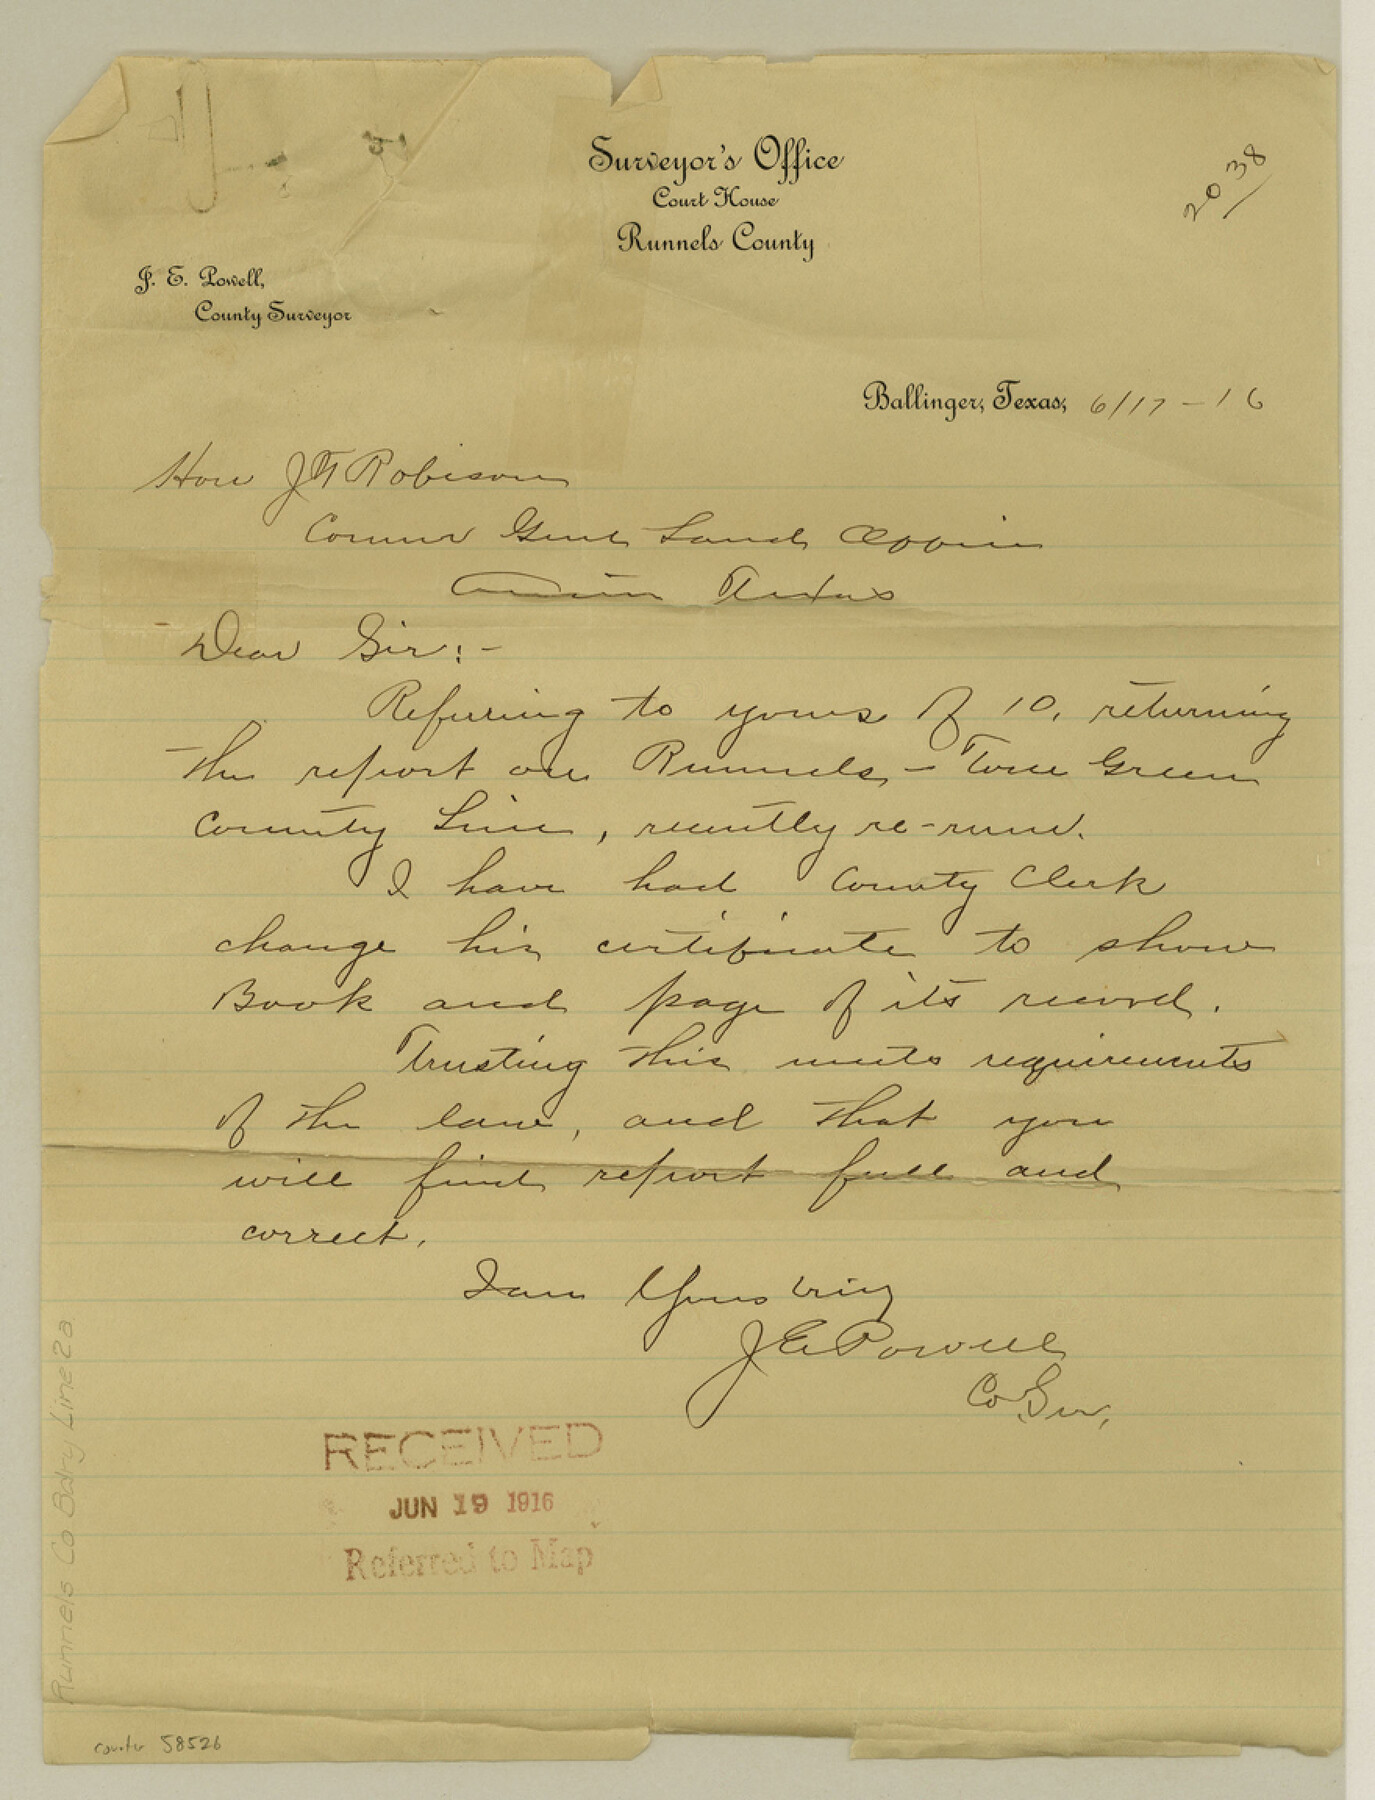 Surveyor's Office
Court House
Runnels County
2038
J. E. Powell,
County Surveyor
Ballinger, Texas, 6/17-16
Hon J T Robison
Commr Genl Land Office
Austin Texas
Dear Sir:-
Referring to yours of 10, returning
the report on Runnels - Tom Green
County Line, recently re-run.
I have had County Clerk
change his certificate to show
Book and page of it's record.
Trusting this meets requirements
of the law, and that you
will find report full and
correct.
I am Yours truly
J E Powell
Co. Sur.
RECEIVED
JUN 19 1916
Referred to Map
Runnels Co Bdry Line 2a
counter 58526